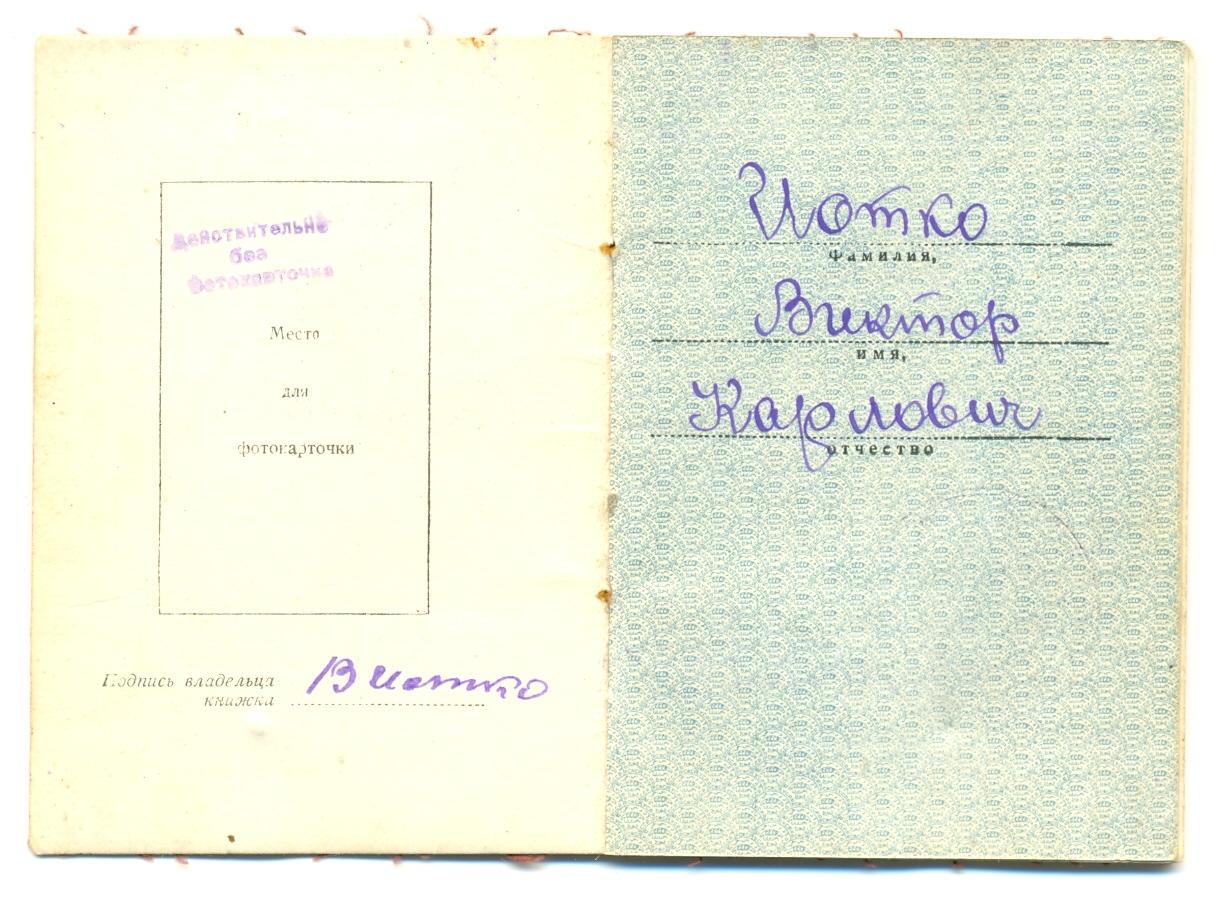 Действительно
без
фотокарточки
Место
для
фотокарточки
Подпись владельца
книжка
В Иотко
Иотко
Фамилия,
Виктор
имя,
Карлович
отчество